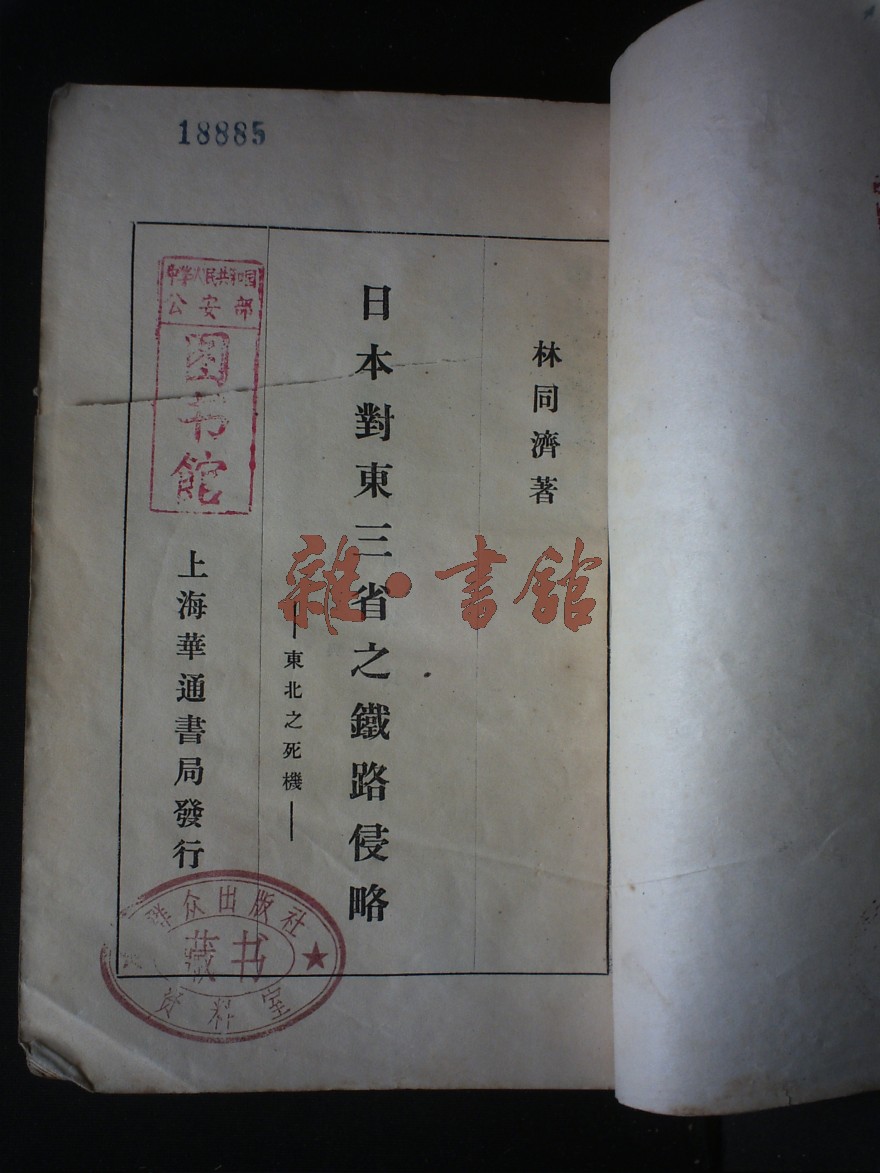 18885
林同濟著
日本對東三省之鐵路侵略
——東北之死機——
上海華通書局發行
中华人民共和国
公安部
图书馆
群众出版社
藏书
资料室
雜·書館